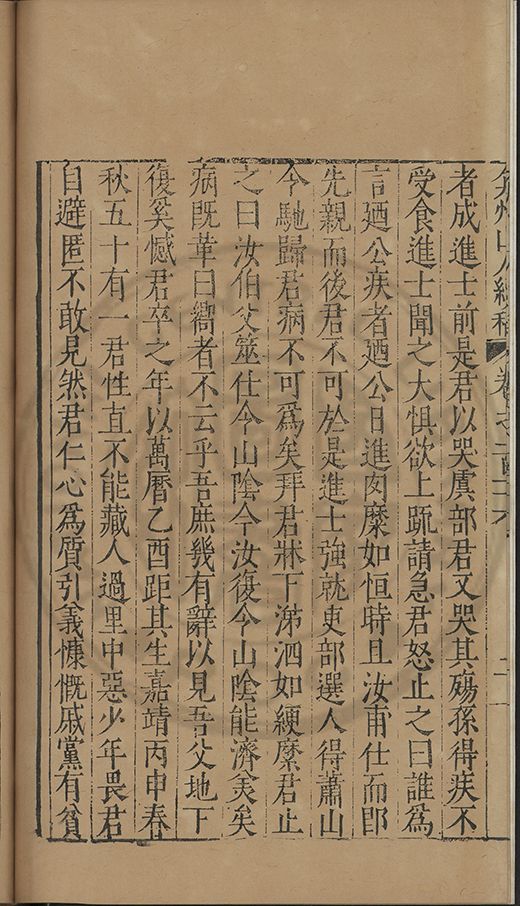 弇州山人續稿 卷之一百二十六
者成進士前是君以哭虞部君又哭其殤孫得疾不
受食進士聞之大懼欲上䟽請急君怒止之曰誰為
言廼公疾者廼公日進肉糜如恒時且汝甫仕而卽
先親而後君不可於是進士強就吏部選人得蕭山
令馳歸君病不可為矣拜君牀下涕泗如綆縻君止
之曰汝伯父筮仕令山陰今汝復令山陰能濟美矣
病既革曰嚮者不云乎吾庶幾有辭以見吾父地下
復奚憾君卒之年以萬曆乙酉距其生嘉靖丙申春
秋五十有一君性直不能藏人過里中惡少年畏君
自避匿不敢見然君仁心為質引義慷慨戚黨有貧